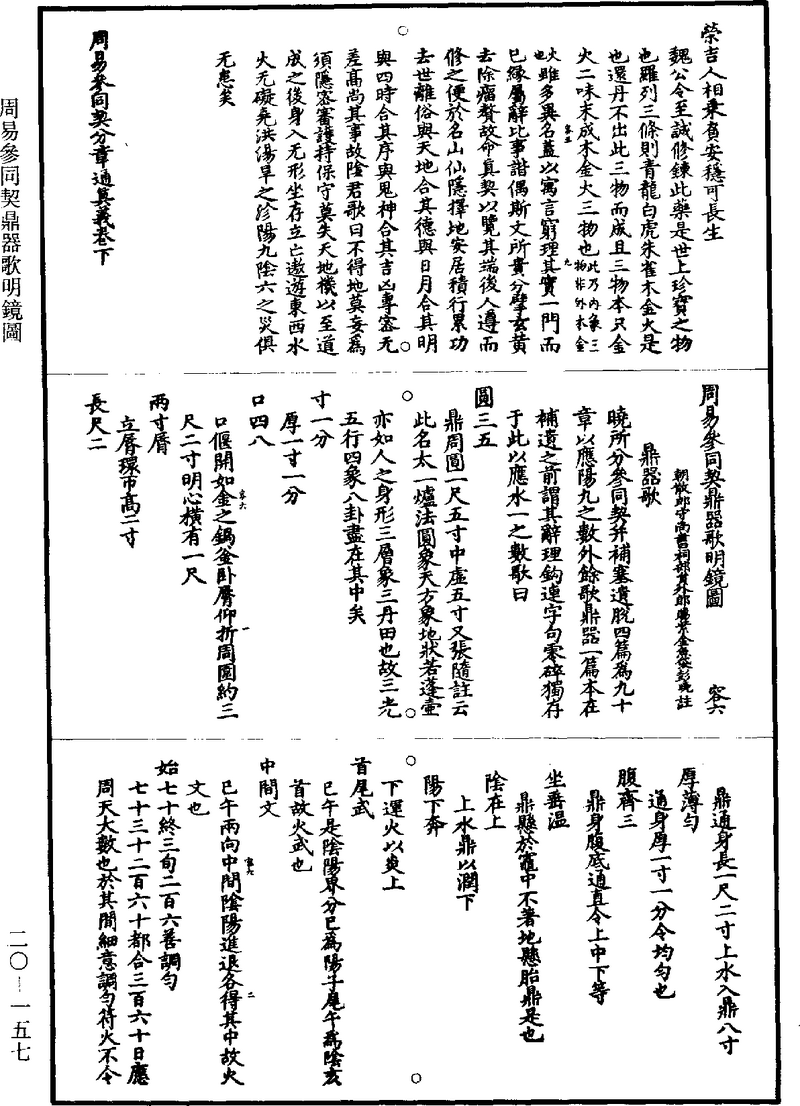 榮吉人相乘負安穩可長生
魏公令至誠修鍊此藥是世上珍寶之物
也羅列三條則青龍白虎朱雀木金火是
也還丹不出此三物而成且三物本只金
火二味末成木金火三物也此乃內象三
物非外木金
火雖多異名蓋以寓言窮理其實一門而
已緣屬辭比事諧偶斯文所貴分擘玄黄
去除瘤贅故命真契以覽其端後人遵而
修之便於名山仙隱擇地安居積行累功
去世離俗與天地合其德與日月合其明
與四時合其序與鬼神合其吉凶專密无
差高尚其事故陰君歌曰不得地莫妄爲
須隱密審護持保守莫失天地機以至道
成之後身入无形坐存立亡遨遊東西水
火无礙堯洪湯旱之沴陽九陰六之災俱
无患矣
周易參同契分章通真義卷下
周易參同契鼎器歌明鏡圖
容六
朝散郎守尚書祠部員外郎賜紫金魚袋彭曉註
鼎器歌
曉所分參同契并補塞遺脫四篇爲九十
章以應陽九之數外餘歌鼎器一篇本在
補遺之前謂其辭理鈎連字句零碎獨存
于此以應水一之數歌曰
圓三五
鼎周圓一尺五寸中虛五寸又張隨註云
此名太一爐法圓象天方象地狀若蓬壺
亦如人之身形三層象三丹田也故三光
五行四象八卦盡在其中矣
寸一分
厚一寸一分
口四八
口偃開如金之鍋釜卧脣仰折周圓約三
尺二寸明心橫有一尺
兩寸脣
立脣環帀高二寸
長尺二
鼎通身長一尺二寸上水入鼎八寸
厚薄勻
通身厚一寸一分令均勻也
腹齊三
鼎身腹底通直令上中下等
坐垂溫
鼎懸於竈中不著地懸胎鼎是也
陰在上
上水鼎以潤下
陽下奔
下運火以炎上
首尾武
巳午是陰陽界分巳爲陽子尾午爲陰亥
首故火武也
中間文
巳午兩向中間陰陽進退各得其中故火
文也
始七十終三旬二百六善調勻
七十三十二百六十都合三百六十日應
周天大數也於其間細意調勻符火不令
周易參同契鼎器歌明鏡圖
二〇—一五七